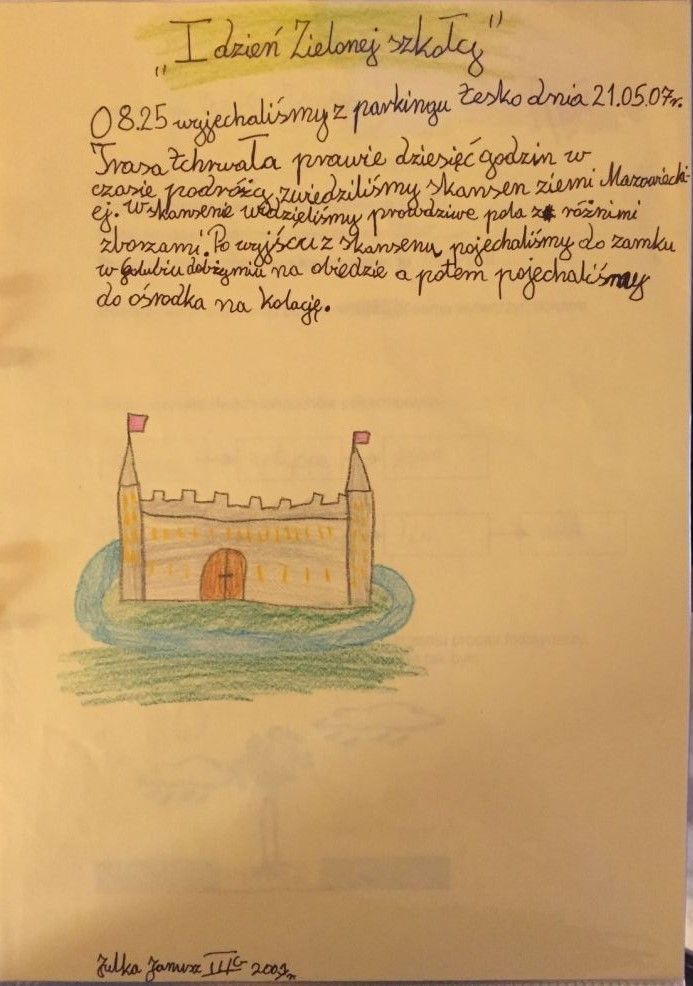 „I dzień Zielonej szkołcy"
O 8.25 wyjechaliśmy z parkingu Łesko dnia 21.05.07r.
Trasa tchrwała prawie dziesięć godzin w
czasie podróży zwiedziliśmy skansen ziemi Mazowiecki-
ej. W skansenie widzieliśmy prowdziwe pola z różnimi
zborzami. Po wyjściu z skansenu pojechaliśmy do zamku
w Golubiu dobżymiu na obiedzie a potem pojechaliśmy
do ośrodka na kolację.
Julka Janusz III G 2007r